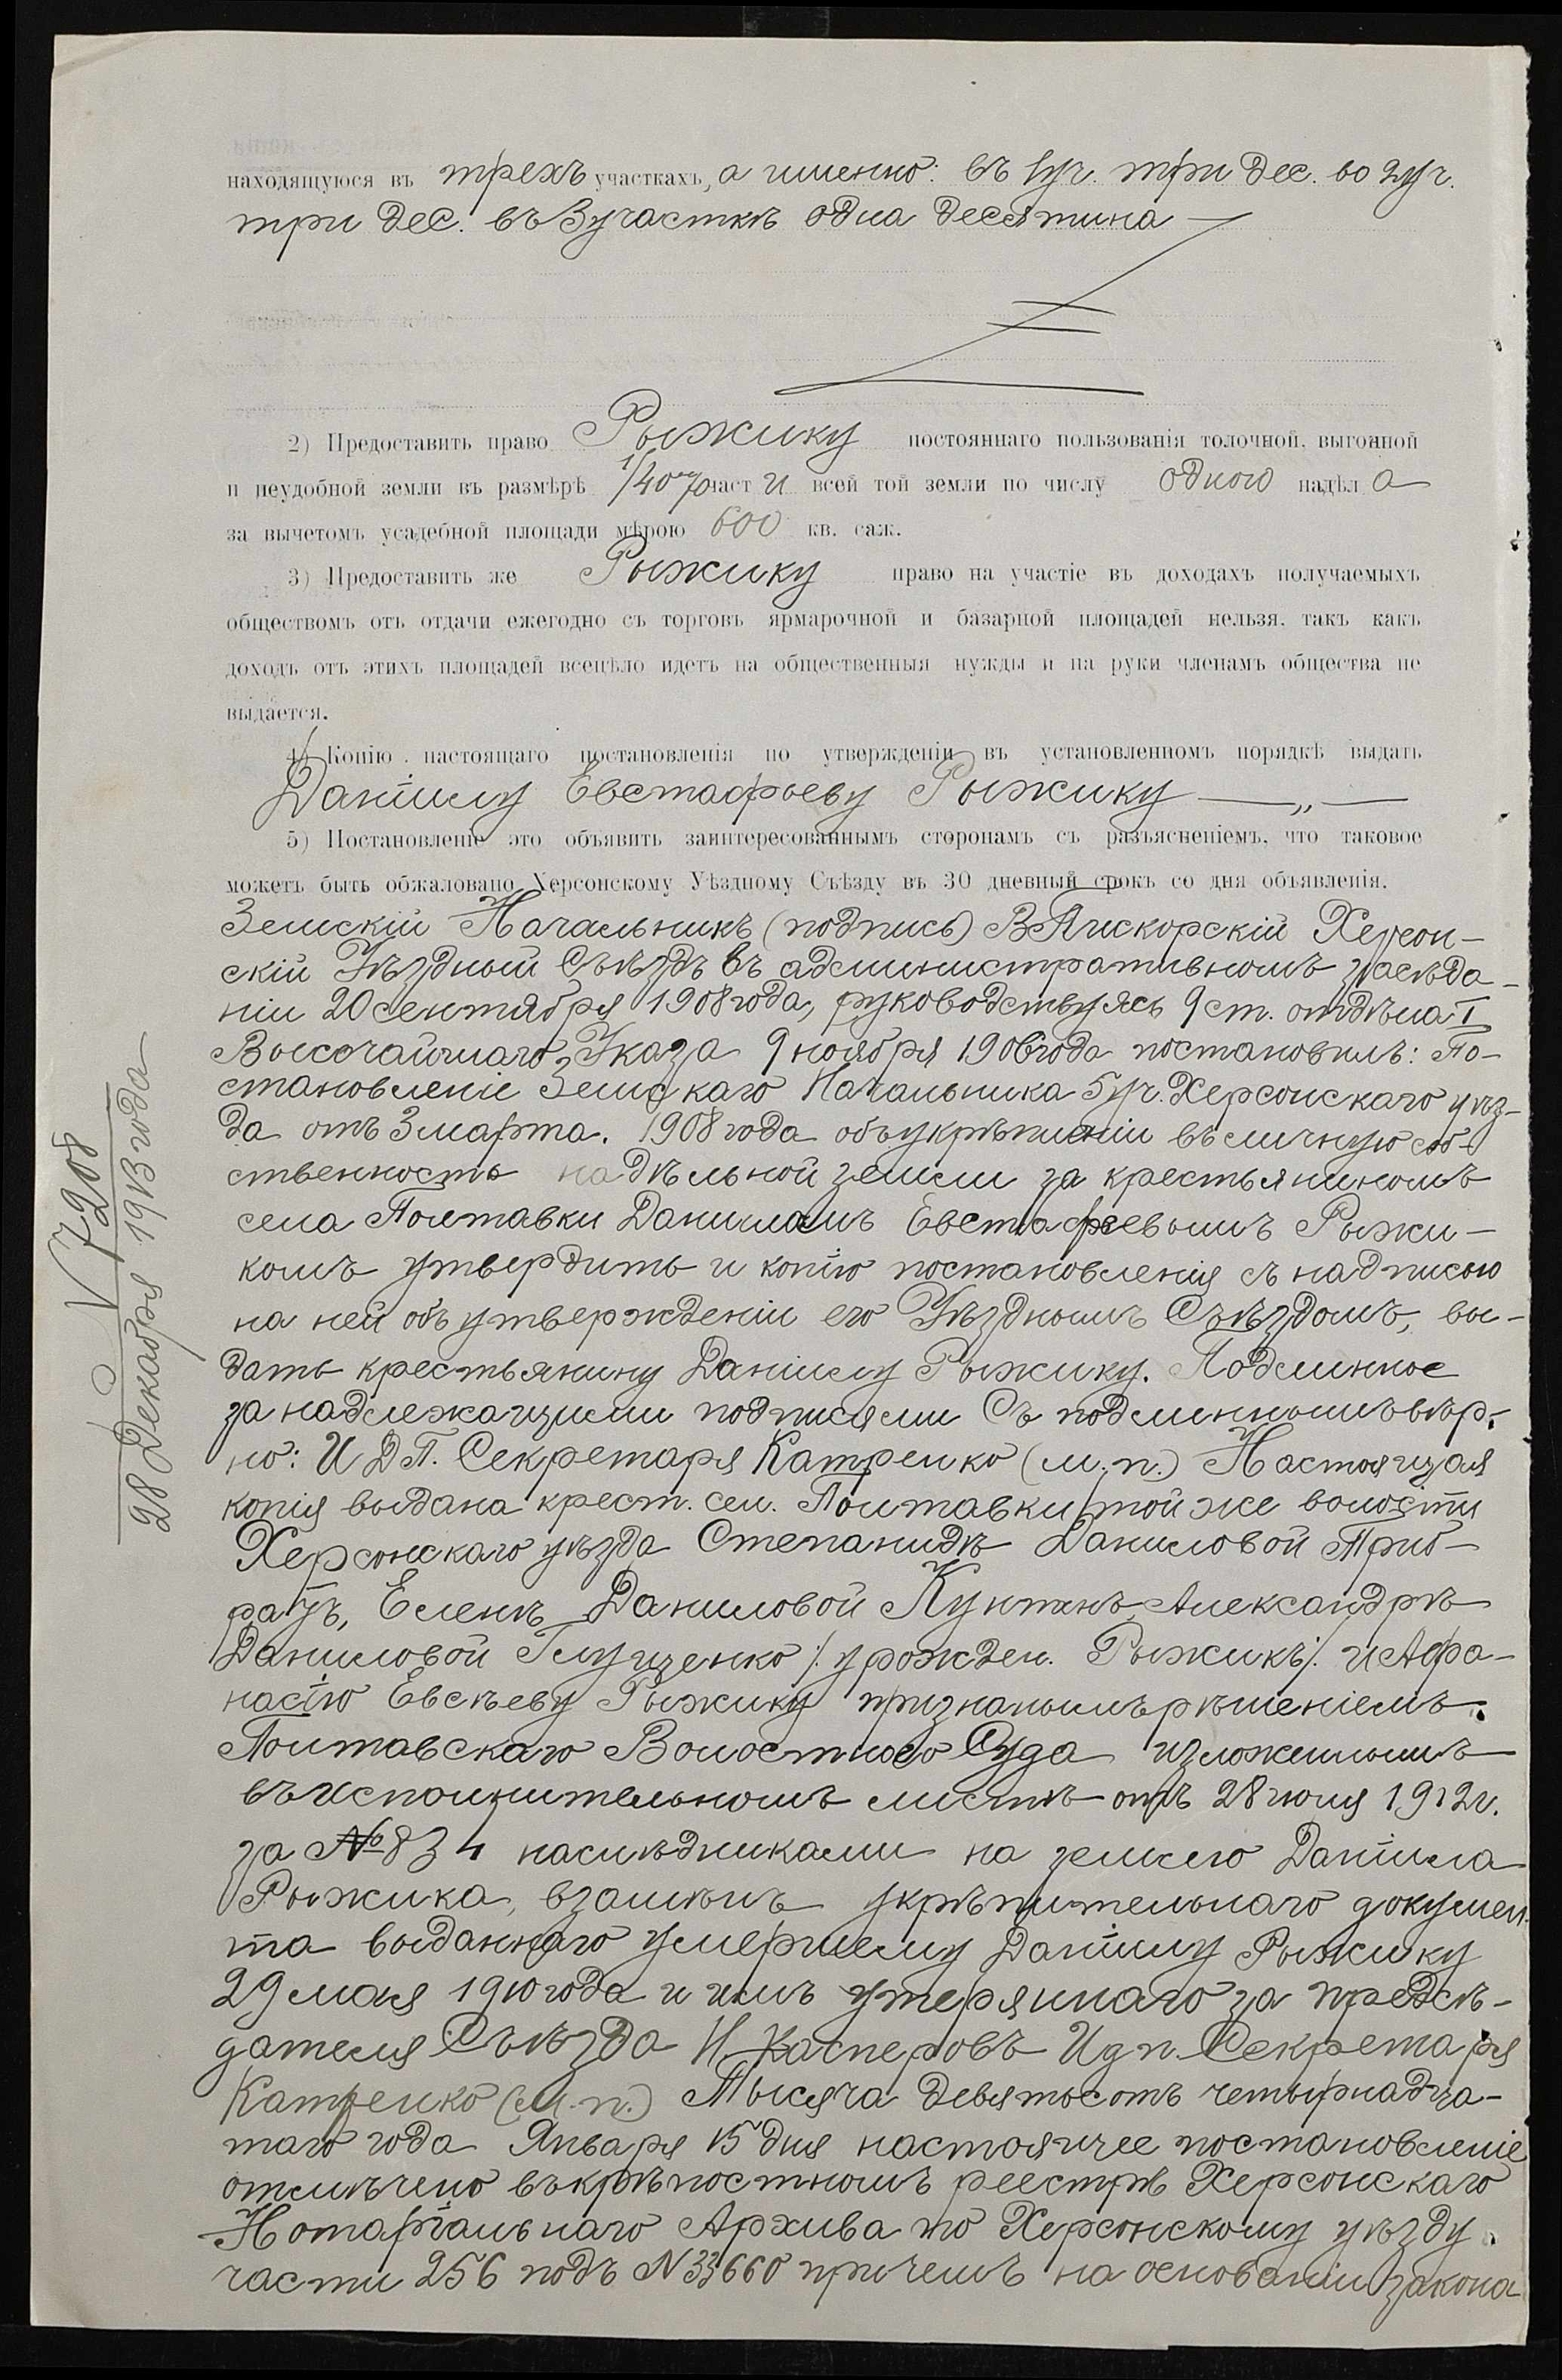 находящуюся въ трехъ участкахъ, а именно: въ 1 уч. три дес. во 2 уч.
три дес. въ 3 участкѣ одна десятина
2) Предоставить право Рыжику постояннаго пользованія толочной, выгонной
и неудобной земли въ размѣрѣ 1/407 част и всей той земли по числу одного надѣл а
за вычетомъ усадебной площади мѣрою 600 кв. саж.
3) Предоставить же Рыжику право на участіе въ доходахъ получаемыхъ
обществомъ отъ отдачи ежегодно съ торговъ ярмарочной и базарной площадей нельзя, такъ какъ
доходъ отъ этихъ площадей всецѣло идетъ на общественныя нужды и на руки членамъ общества не
выдается.
4) Копію настоящаго постановленія по утвержденіи въ установленномъ порядкѣ выдать
Даніилу Евстафьеву Рыжику — „ —
5) Постановленіе это объявить заинтересованнымъ сторонамъ съ разъясненіемъ, что таковое
можетъ быть обжаловано Херсонскому Уѣздному Съѣзду въ 30 дневный срокъ со дня объявленія.
Земскій Начальникъ (подпись) Херсон-
скій Уѣздный Съѣздъ въ административномъ засѣда-
ніи 20 сентября 1908 года, руководствуясь 9 ст. отдѣла I
Высочайшаго Указа 9 ноября 1906 года постановилъ: По-
становленіе Земскаго Начальника 5 уч. Херсонскаго уѣз-
да отъ 3 марта. 1908 года объ укрѣпленіи въ личную соб-
ственность надѣльной земли за крестьяниномъ
села Полтавки Даниломъ Евстафьевымъ Рыжи-
комъ утвердить и копію постановленія съ надписью
на ней объ утвержденіи его Уѣзднымъ Съѣздомъ, вы-
дать крестьянину Даніилу Рыжику. Подлинное
за надлежащими подписями Съ подлиннымъ вѣр-
но: И Д П. Секретаря Катренко (м. п.) Настоящая
копія выдана крест. сел. Полтавки той же волости
Херсонскаго уѣзда Степанидѣ Даниловой
Еленѣ Даниловой Александрѣ
Даниловой Глущенко /. урожден. Рыжикъ /. и Афа-
насію Евсѣеву Рыжику признанымъ рѣшеніемъ
Полтавскаго Волостного Суда изложеннымъ
въ исполнительномъ листѣ отъ 28 1912 г.
за № 834 наслѣдниками на землю Даніила
Рыжика, взамѣнъ укрѣпительнаго докумен-
та выданнаго умершему Даніилу Рыжику
29 мая 1910 года и имъ утеряннаго за предсѣ-
дателя Съѣзда Н. Касперовъ И д п. Секретаря
Катренко (м. п.) Тысяча девятьсотъ четырнадца-
таго года Января 15 дня настоящее постановленіе
отмѣчено въ крѣпостномъ реестрѣ Херсонскаго
Нотаріальнаго Архива по Херсонскому уѣзду
части 256 подъ N 33660 причемъ на основаніи закона
V 7208
28 Декабря 1913 года